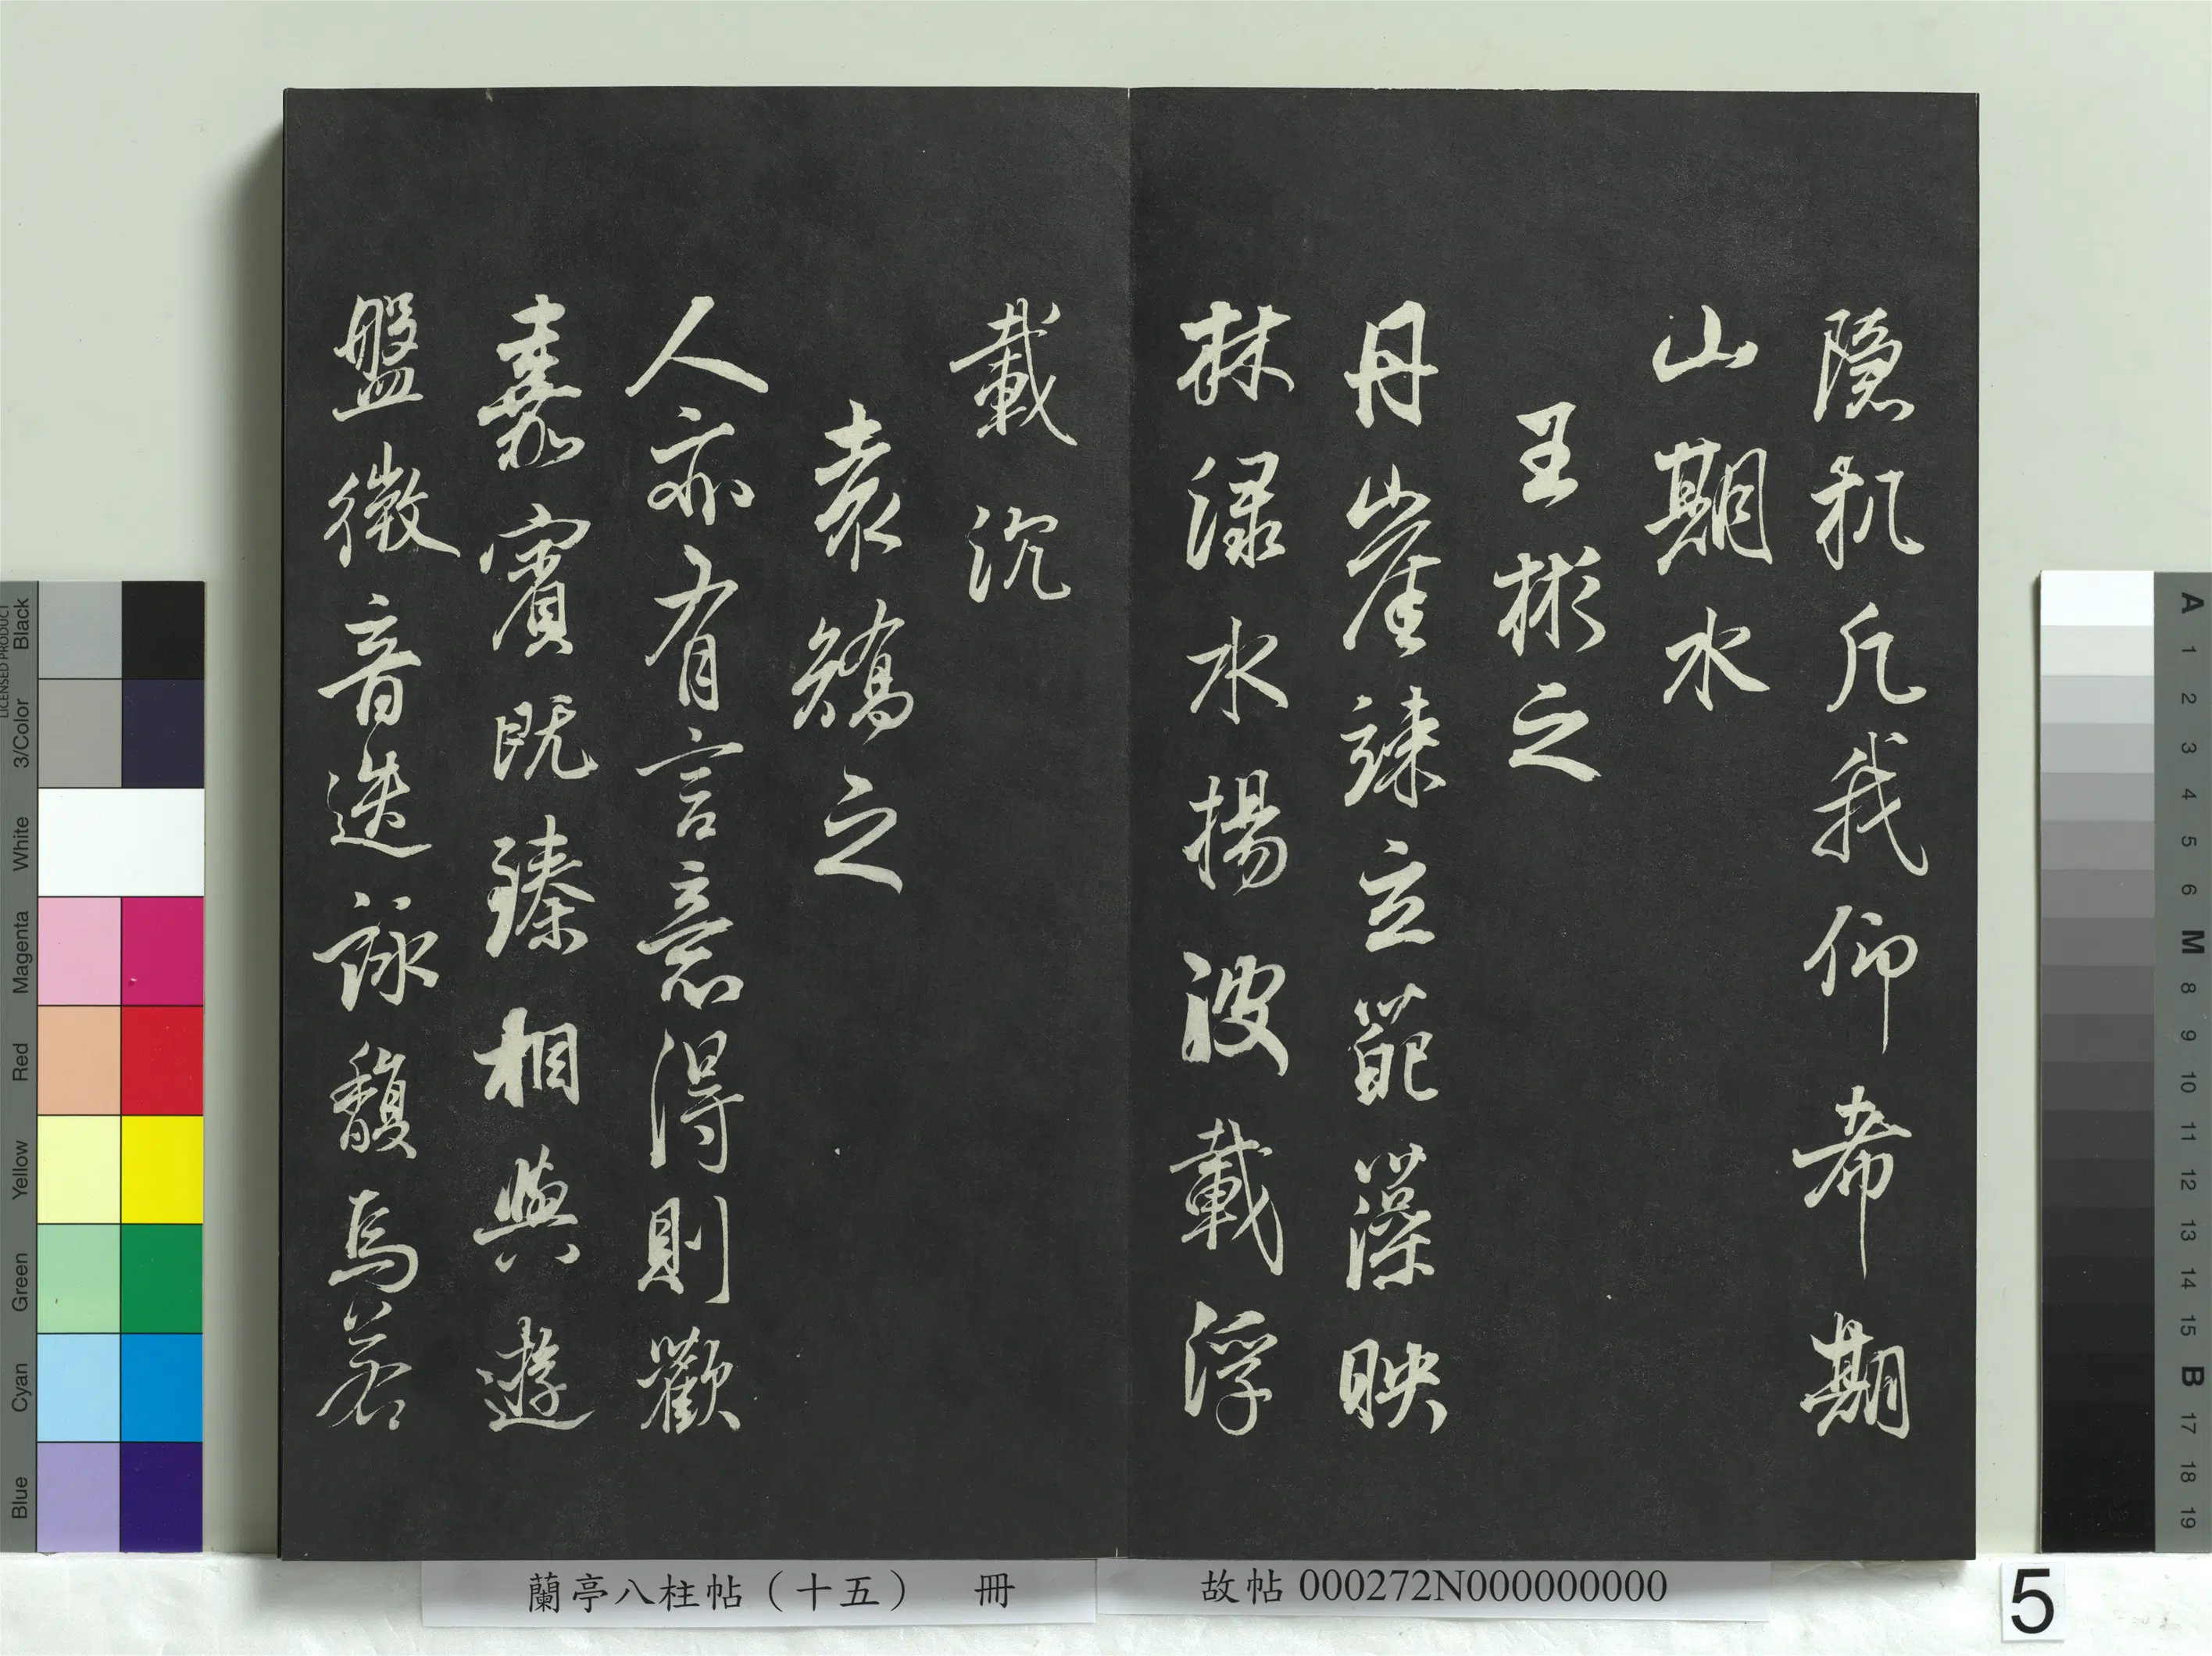 隱机凡我仰希期
山期水
王彬之
丹崖竦立葩藻映
林淥水揚波載浮
載沉
袁嶠之
人亦有言意得則歡
嘉賓既臻相與遊
盤微音迭詠馥焉若
蘭亭八柱帖（十五） 冊
故帖 000272N000000000
5
LICENSED PRODUCT
Black
3/Color
White
Magenta
Red
Yellow
Green
Cyan
Blue
A
1
2
3
4
5
6
M
8
9
10
11
12
13
14
15
B
17
18
19